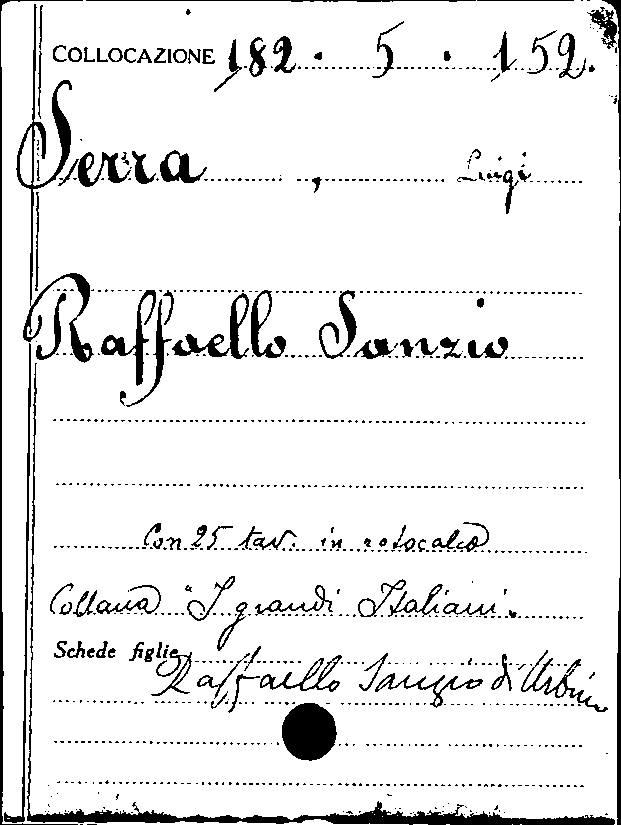 COLLOCAZIONE 182 . 5 . 152.
Serra , Luigi
Raffaello Sanzio
Con 25 tav. in rotocalco
Collana "I grandi Italiani".
Schede figlie:
Raffaello Sanzio di Urbino